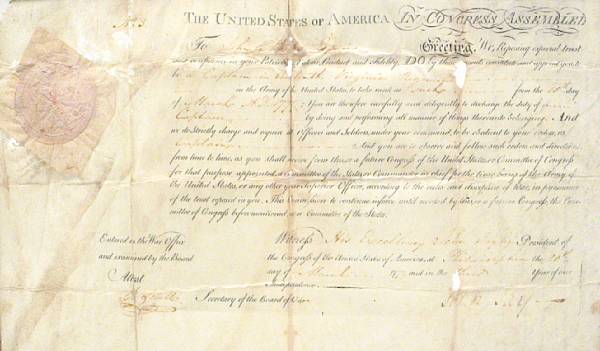 The United States of America In Congress Assembled
To Greeting. We Reposing especial trust
and confidence in your Patriotism, Valour, Conduct and Fidelity, DO by these presents constitute and appoint you to
be a Captain in Virginia
in the Army of the United States, to take rank as such from the day
of March A.D. You are therefore carefully and diligently to discharge the duty of
Captain by doing and performing all manner of things thereunto belonging. And
we do strictly charge and require all Officers and Soldiers, under your command, to be obedient to your orders, as
Captain And you are to observe and follow such orders and directions
from time to time, as you shall receive from this or a future Congress of the United States, or Committee of Congress
for that purpose appointed, a Committee of the States, or Commander in chief for the time being of the Army of
the United States, or any other your Superior Officer, according to the rules and discipline of War, in pursuance
of the trust reposed in you. This Commission to continue in force until revoked by this, or a future Congress, the Com-
mittee of Congress before mentioned, or a Committee of the States.
Entered in the War Office
and examined by the Board
Attest
Secretary of the Board of War
Witness His Excellency President of
the Congress of the United States of America, at Philadelphia the 20th
day of March and in the third Year of our
Independence.